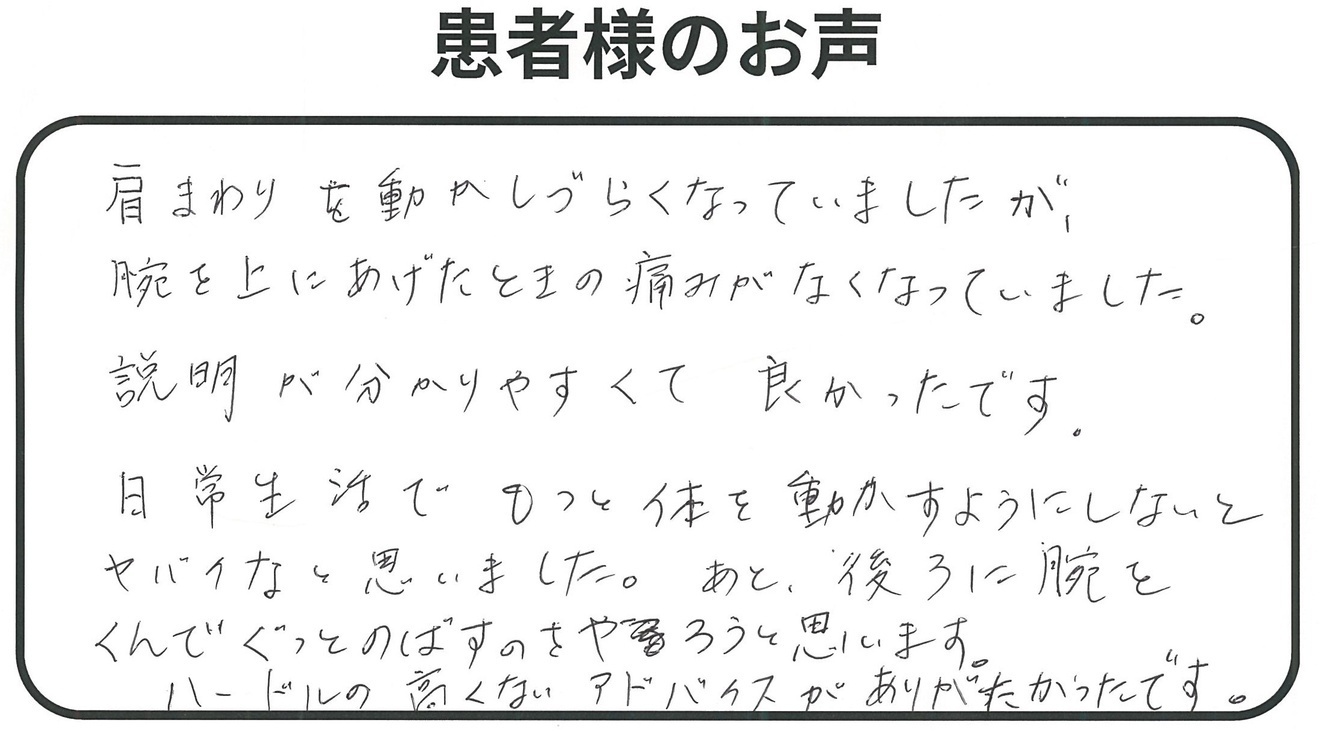 患者様のお声
肩まわりを動かしづらくなっていましたが、
腕を上にあげたときの痛みがなくなっていました。
説明が分かりやすくて良かったです。
日常生活でもっと体を動かすようにしないと
ヤバイなと思いました。あと、後ろに腕を
くんでぐっとのばすのをやろうと思います。
ハードルの高くないアドバイスがありがたかったです。